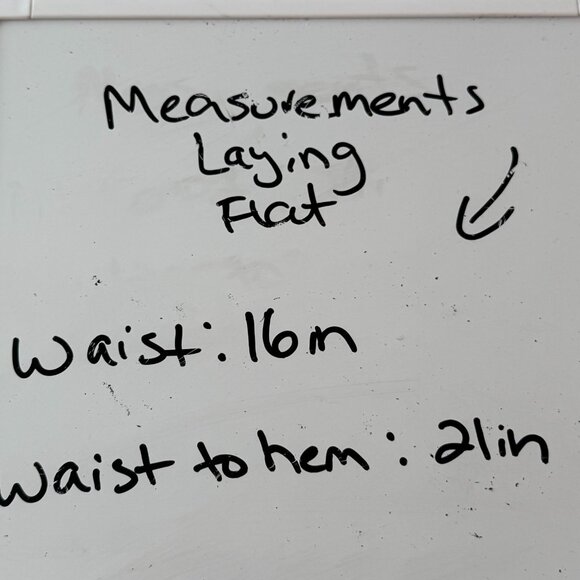 Measurements
Laying
Flat
Waist: 16in
Waist to hem: 21in